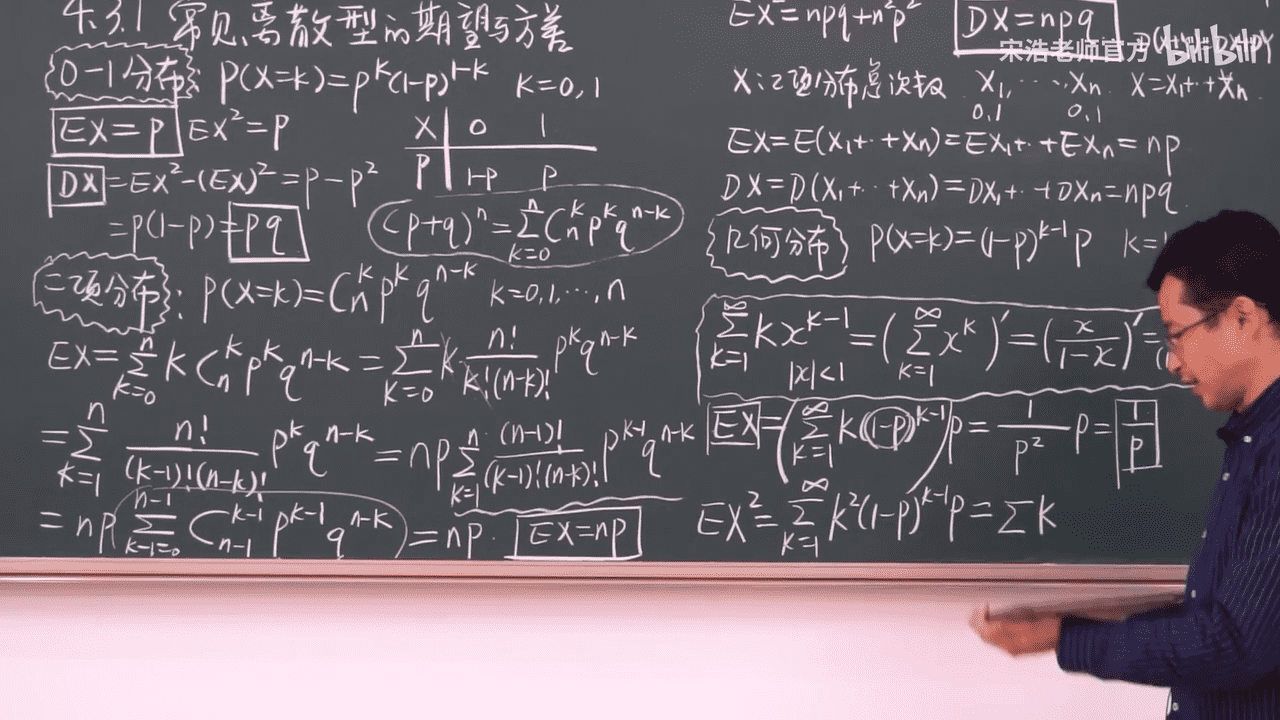 4.3.1 常见离散型的期望与方差
0-1分布: P(X=k)=p^k(1-p)^{1-k} k=0,1
EX=p EX²=p
X 0 1
P 1-p p
DX=EX²-(EX)²=p-p²
=p(1-p)=pq
(p+q)^n=\sum_{k=0}^{n}C_n^k p^k q^{n-k}
二项分布: P(X=k)=C_n^k p^k q^{n-k} k=0,1,…,n
EX=\sum_{k=0}^{n}k C_n^k p^k q^{n-k}=\sum_{k=0}^{n}k·\frac{n!}{k!(n-k)!}p^k q^{n-k}
=\sum_{k=1}^{n}\frac{n!}{(k-1)!(n-k)!}p^k q^{n-k}=np\sum_{k=1}^{n}\frac{(n-1)!}{(k-1)!(n-k)!}p^{k-1}q^{n-k}
=np\sum_{k-1=0}^{n-1}C_{n-1}^{k-1}p^{k-1}q^{n-k}=np. EX=np
EX²=npq+n²p² DX=npq
宋浩老师官方 bilibili
X:二项分布总次数 X_1,…,X_n X=X_1+··+X_n
0,1 0,1
EX=E(X_1+··+X_n)=EX_1+··+EX_n=np
DX=D(X_1+··+X_n)=DX_1+··+DX_n=npq
几何分布 P(X=k)=(1-p)^{k-1}p k=1
\sum_{k=1}^{∞}kx^{k-1}=(\sum_{k=1}^{∞}x^k)'=(\frac{x}{1-x})'=
|x|<1
EX=(\sum_{k=1}^{∞}k(1-p)^{k-1})p=\frac{1}{p²}p=\frac{1}{p}
EX²=\sum_{k=1}^{∞}k²(1-p)^{k-1}p=∑k